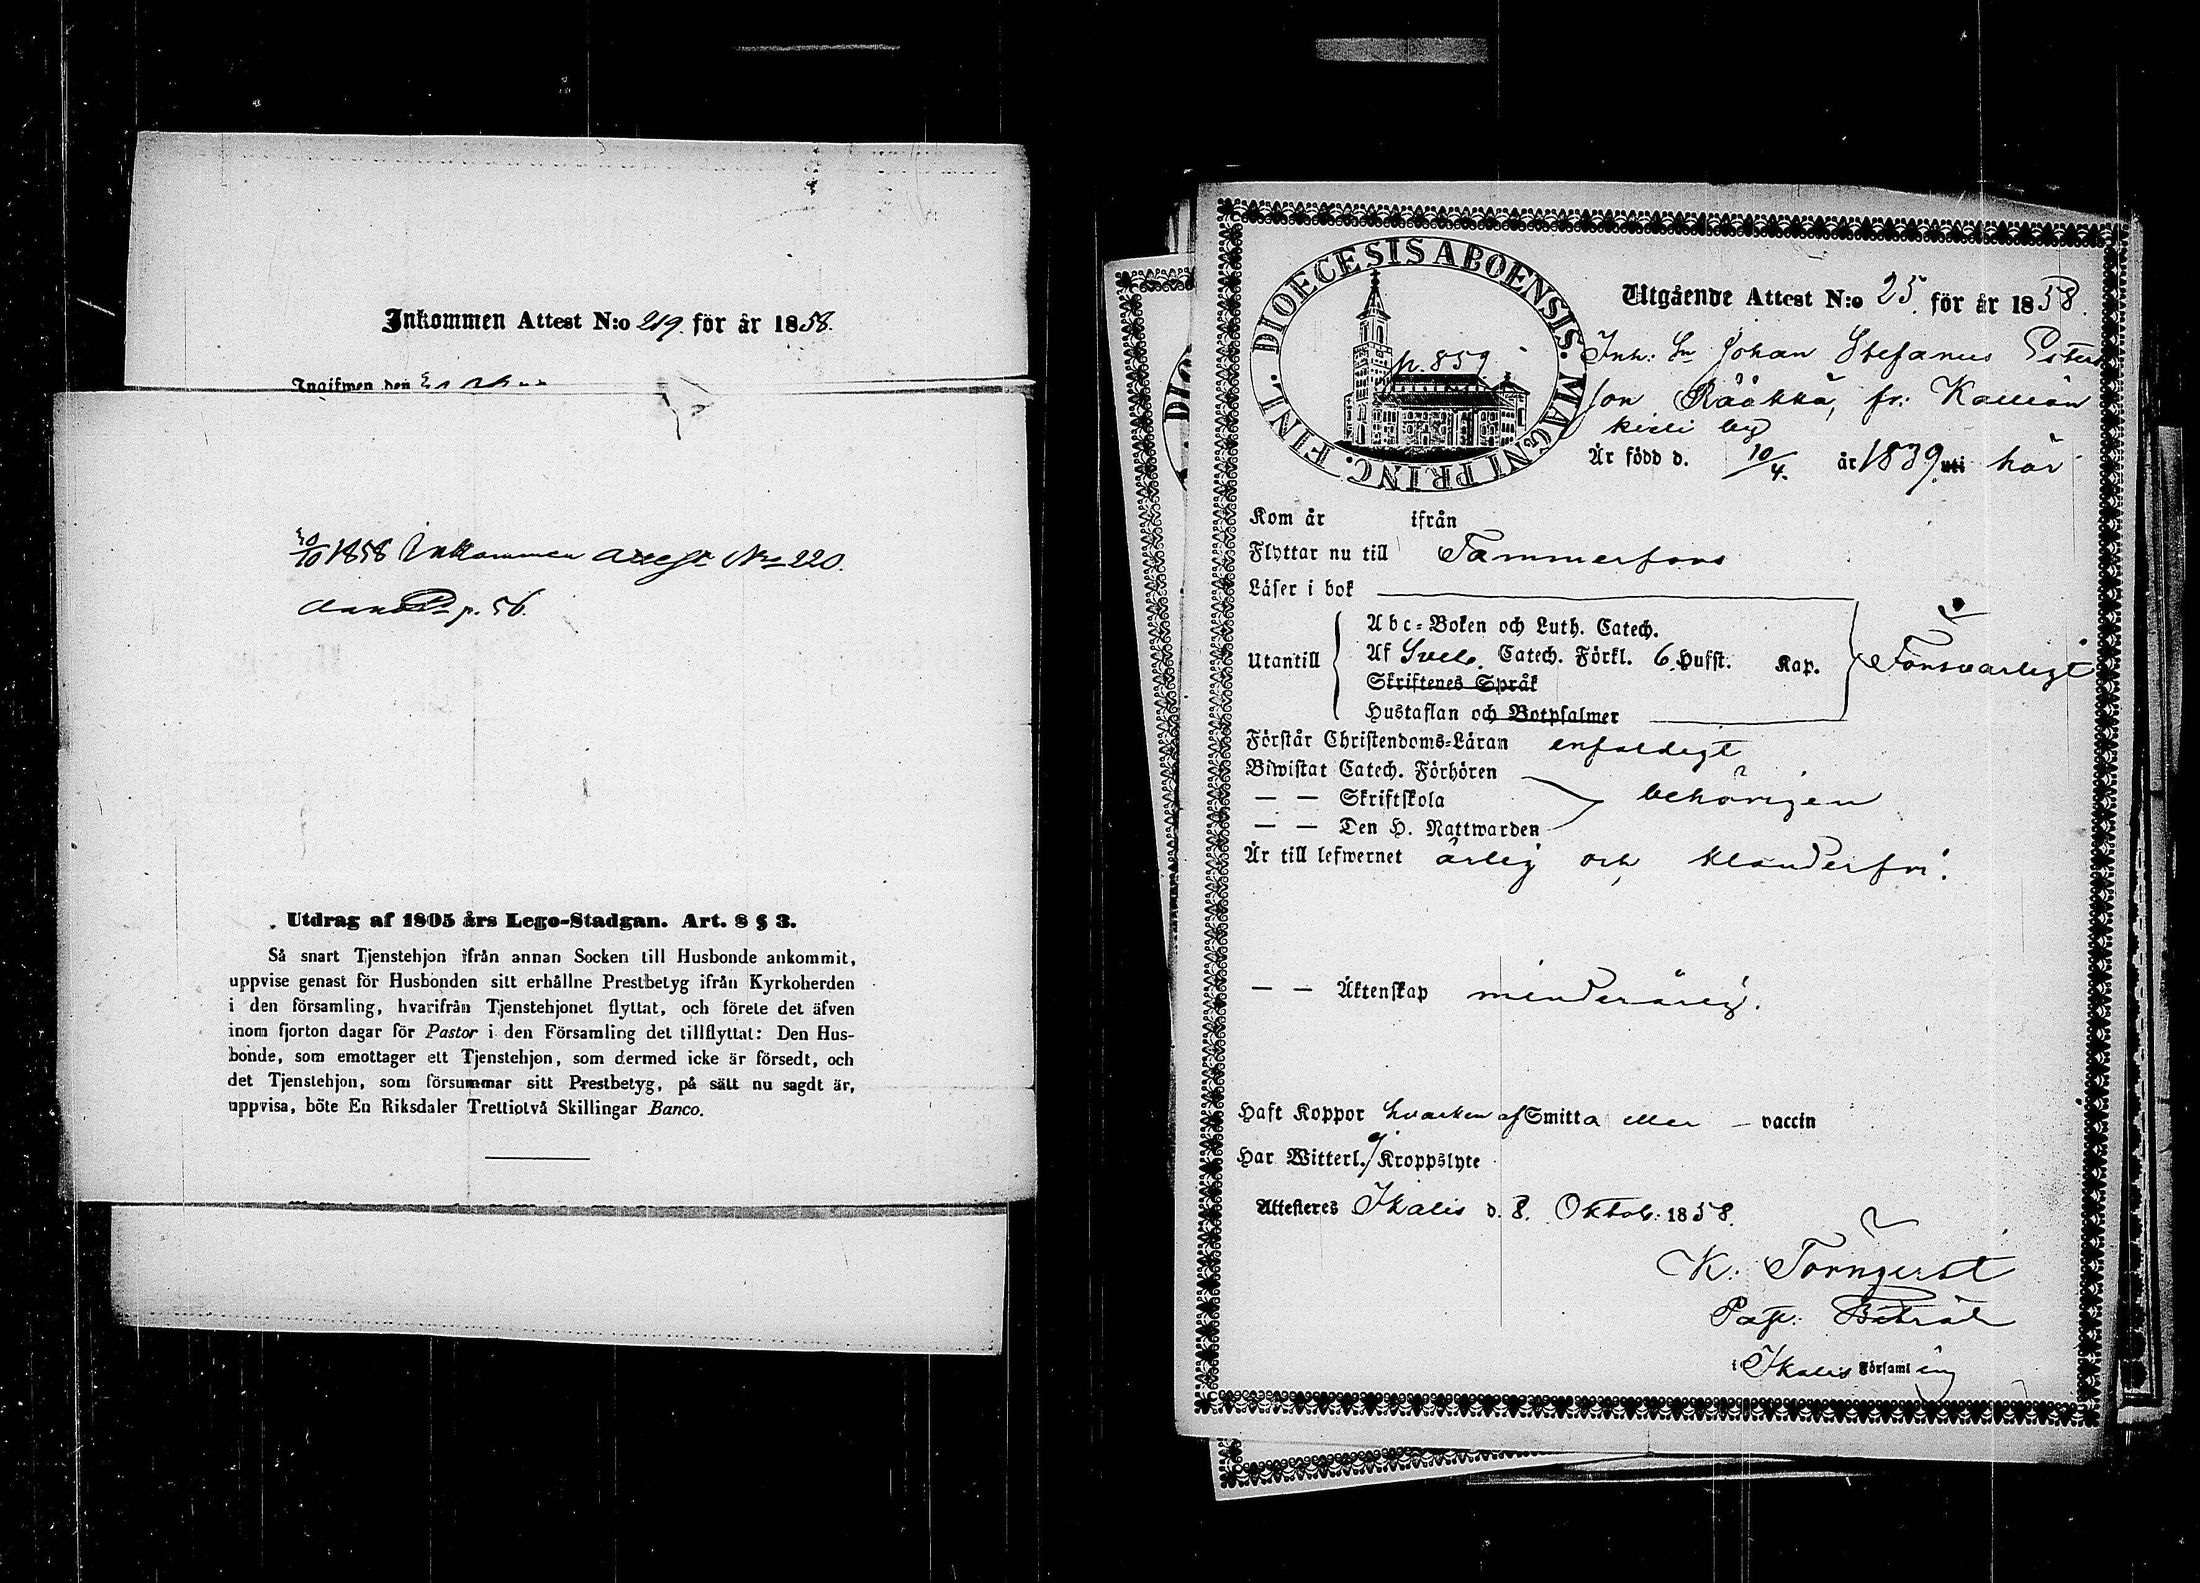 Inkommen Attest N:o 219. för år 1858.
Ingifwen den
30/10 1858 Inkommen attest No 220.
p. 56.
Utdrag af 1805 års Lego-Stadgan. Art. 8 § 3.
Så snart Tjenstehjon ifrån annan Socken till Husbonde ankommit,
uppvise genast för Husbonden sitt erhållne Prestbetyg ifrån Kyrkoherden
i den församling, hvarifrån Tjenstehjonet flyttat, och förete det äfven
inom fjorton dagar för Pastor i den Församling det tillflyttat: Den Hus-
bonde, som emottager ett Tjenstehjon, som dermed icke är försedt, och
det Tjenstehjon, som försummar sitt Prestbetyg, på sätt nu sagdt är,
uppvisa, böte En Riksdaler Trettiotvå Skillingar Banco.
DIOECESIS ABOENSIS. MAGNI PRINC. FINL.
p. 859
Utgående Attest N:o 25. för år 1858.
Inh: Sn Johan Stefanus Peters
son Rääkkä, fr: Kallion
kieli by
Är född d. 10/4. år 1839. uti här
Kom år ifrån
Flyttar nu till Tammerfors
Läser i bok
Utantill
Abc-Boken och Luth. Catech.
Af Sveb. Catech. Förkl. 6 Hufst. Kap. Försvarligt
Skriftenes Språk
Hustaflan och Botpsalmer
Förstår Christendoms-Läran enfaldigt
Biwistat Catech. Förhören
— — Skriftskola behörigen
— — Den H. Nattwarden
Är till lefwernet ärlig och klanderfri.
— — Äktenskap minderårig.
Haft Koppor hvarken af Smitta eller – vaccin
Har Witterl. ej Kroppslyte
Attesteres Ikalis d. 8. Oktob: 1858.
K. Törnqvist
Past. Biträd
i Ikalis Församling